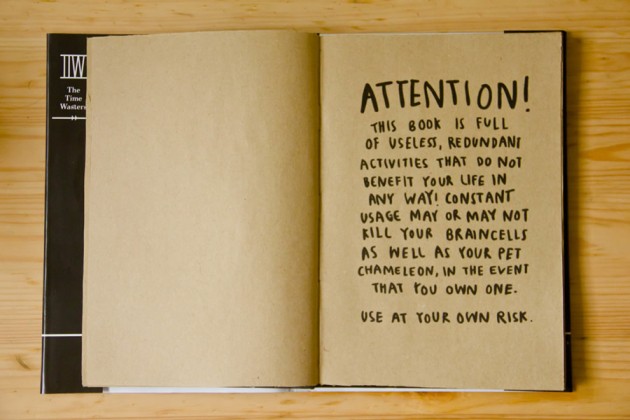 The
Time
Wasters
ATTENTION!
THIS BOOK IS FULL
OF USELESS, REDUNDANT
ACTIVITIES THAT DO NOT
BENEFIT YOUR LIFE IN
ANY WAY! CONSTANT
USAGE MAY OR MAY NOT
KILL YOUR BRAINCELLS
AS WELL AS YOUR PET
CHAMELEON, IN THE EVENT
THAT YOU OWN ONE.
USE AT YOUR OWN RISK.